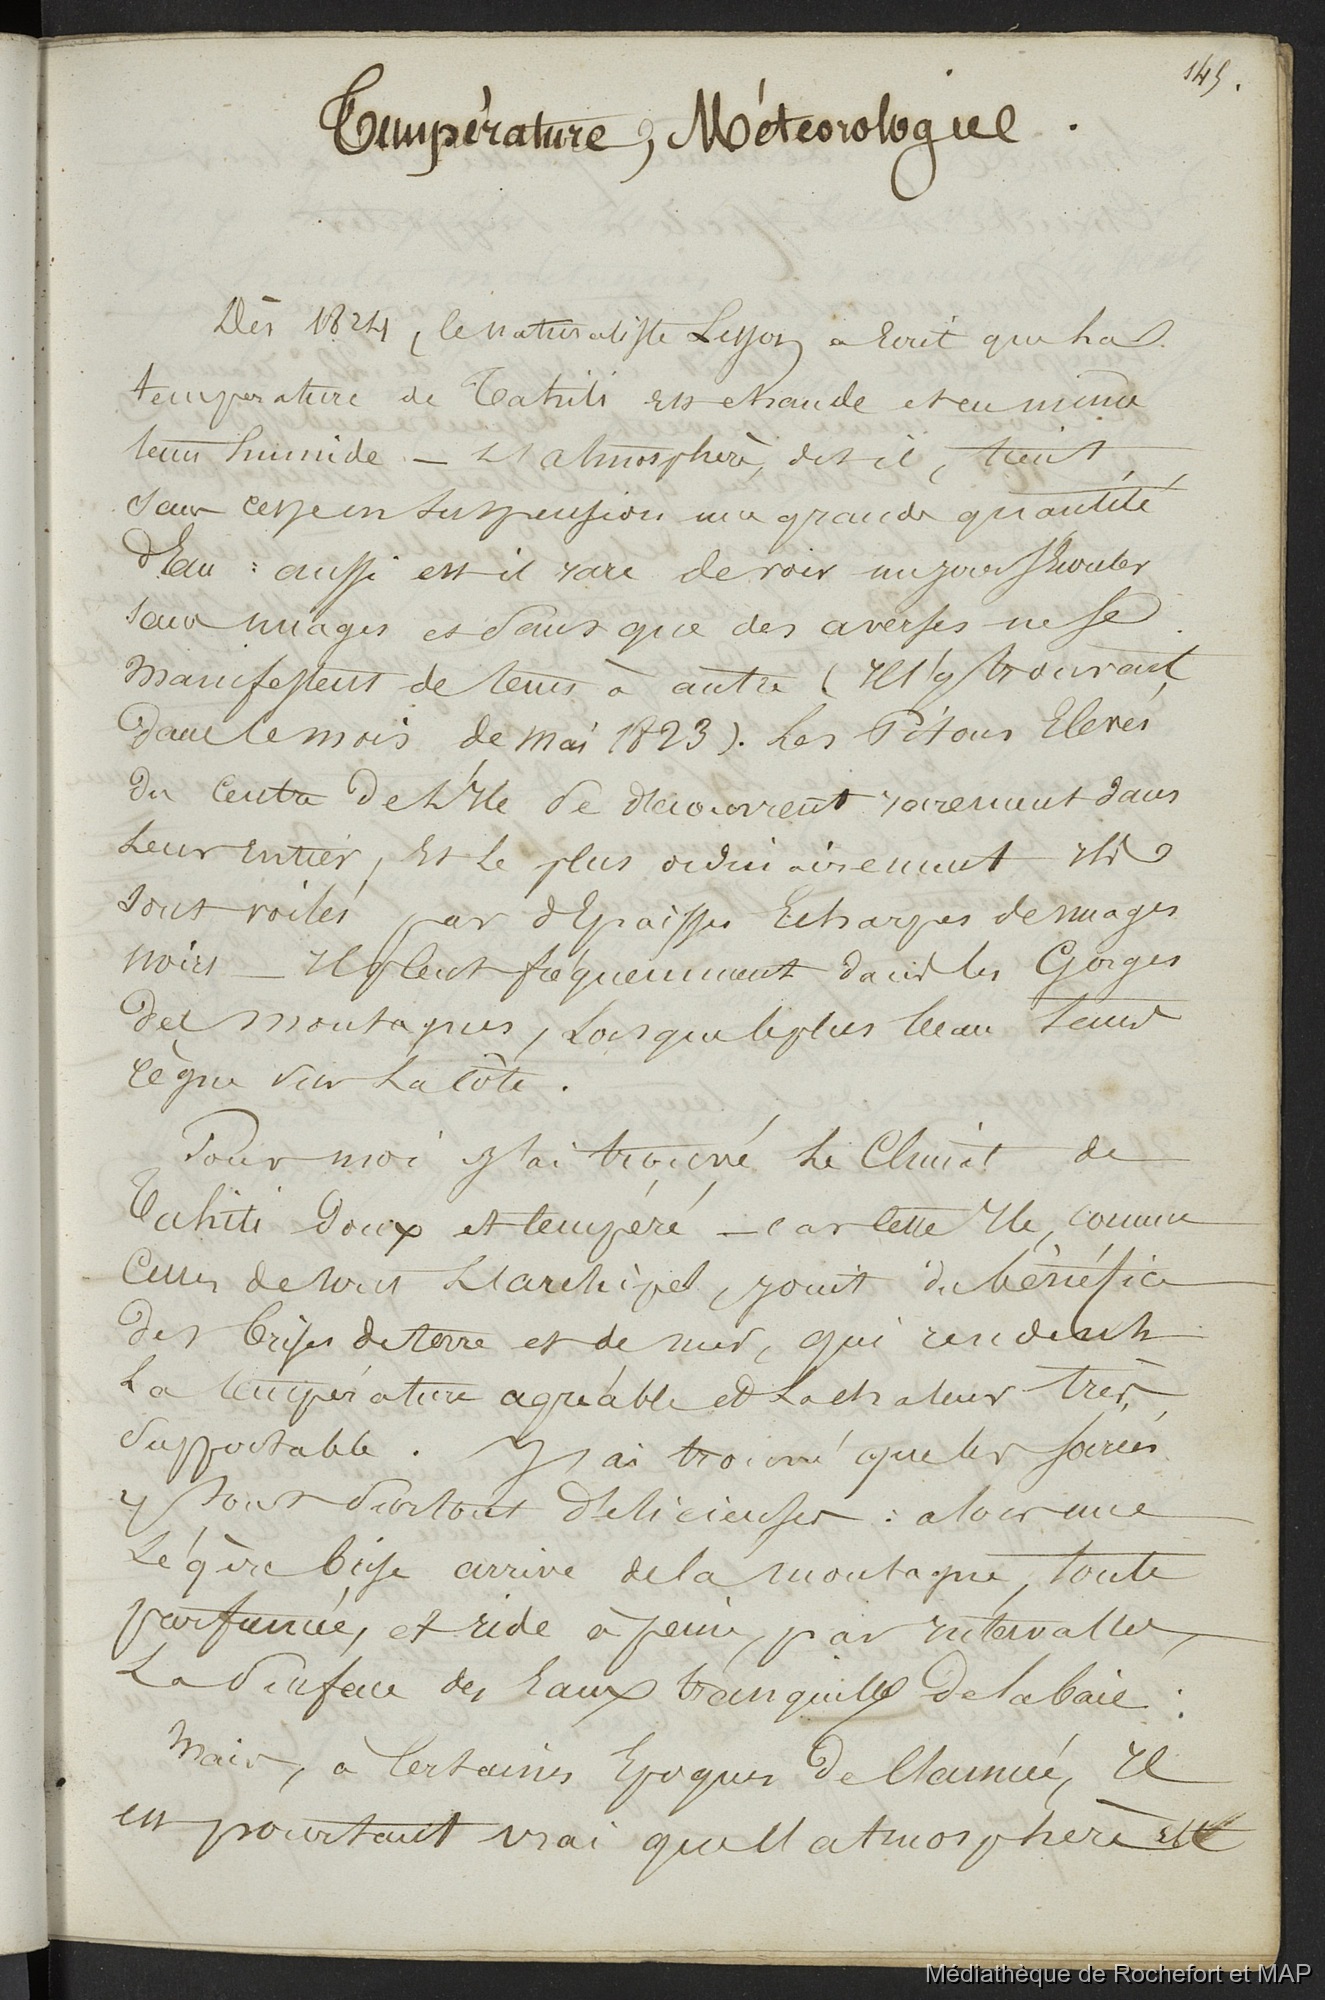 145.
Température, Méteorologie.
Dès 1824, le naturaliste Lesson a Ecrit que La
température de Tahiti est chaude et en même
tems humide — L'atmosphère, dit-il, tient
Sans cesse en Suspension une grande quantité
d'Eau : aussi est il rare de voir un jour S'écouler
Sans nuages et Sans que des averses ne se
manifestent de tems à autre (Il s'y trouvait
dans le mois de Mai 1823). Les Pitons Elevés
du Centre De L'Ile Se découvrent rarement dans
Leur Entier, Et Le plus ordinairement ils
Sont voilés par d'Epaisses Echarpes de nuages
noirs — Il pleut fréquemment dans les Gorges
des montagnes, Lorsque le plus beau tems
règne Sur La Côte.
Pour moi J'ai trouvé Le Climat de
Tahiti Doux et tempéré — car cette Ile, comme
Celles de tout L'archipel, jouit du bénéfice
Des brises de terre et de mer, qui rendent
La température agréable et La chaleur très
Supportable. J'ai trouvé que les soirées
y sont Surtout Délicieuses : alors une
Légère brise arrive de la montagne, toute
parfumée, et ride à peine, par intervalles,
La Surface des Eaux tranquilles De la baie :
Mais, à Certaines Epoques De l'année, Il
est pourtant vrai que l'atmosphère est
Médiathèque de Rochefort et MAP